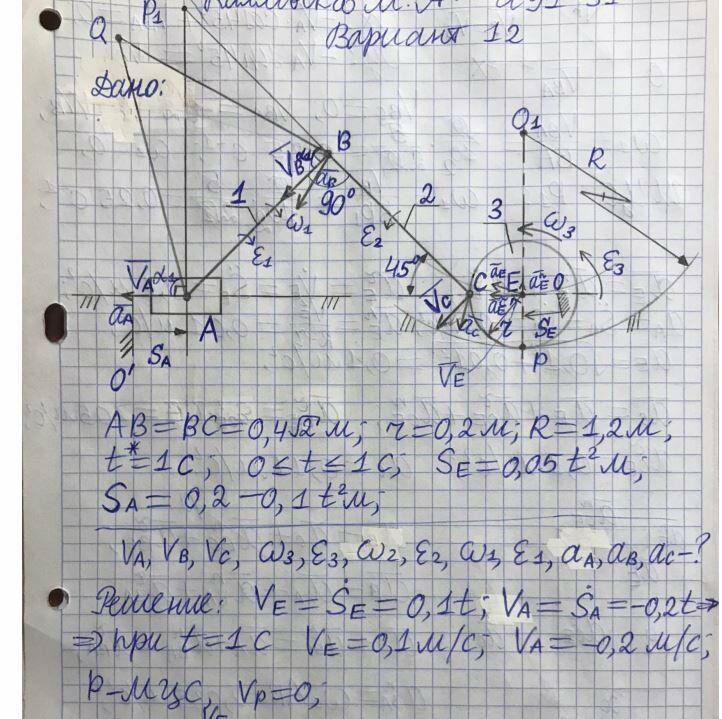 Вариант 12
Дано:
Q
P₁
B
O₁
R
V̄B
α₁
āB
90°
ω₁
1
2
ε₁
ε₂
3
ω₃
ε₃
45°
V̄A
α₁
āA
A
SA
O'
C
E
O
V̄C
āC
r
SE
V̄E
P
AB = BC = 0,4√2 м; r = 0,2 м; R = 1,2 м;
t* = 1 с; 0 ≤ t ≤ 1 с; SE = 0,05 t² м;
SA = 0,2 – 0,1 t² м;
VA, VB, VC, ω₃, ε₃, ω₂, ε₂, ω₁, ε₁, aA, aB, aC – ?
Решение: VE = ṠE = 0,1t; VA = ṠA = –0,2t ⇒
⇒ при t = 1 с VE = 0,1 м/с; VA = –0,2 м/с;
P – МЦС, VP = 0;